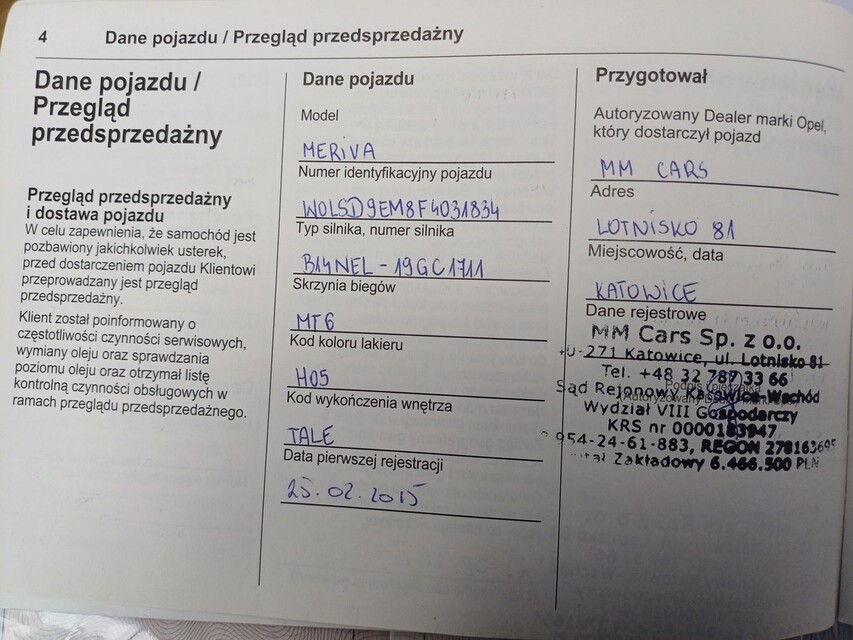 4 Dane pojazdu / Przegląd przedsprzedażny
Dane pojazdu /
Przegląd
przedsprzedażny
Przegląd przedsprzedażny
i dostawa pojazdu
W celu zapewnienia, że samochód jest
pozbawiony jakichkolwiek usterek,
przed dostarczeniem pojazdu Klientowi
przeprowadzany jest przegląd
przedsprzedażny.
Klient został poinformowany o
częstotliwości czynności serwisowych,
wymiany oleju oraz sprawdzania
poziomu oleju oraz otrzymał listę
kontrolną czynności obsługowych w
ramach przeglądu przedsprzedażnego.
Dane pojazdu
Model
MERIVA
Numer identyfikacyjny pojazdu
W0LSD9EM8F4031834
Typ silnika, numer silnika
B14NEL - 19GC1711
Skrzynia biegów
MT6
Kod koloru lakieru
H05
Kod wykończenia wnętrza
TALE
Data pierwszej rejestracji
25.02.2015
Przygotował
Autoryzowany Dealer marki Opel,
który dostarczył pojazd
MM CARS
Adres
LOTNISKO 81
Miejscowość, data
KATOWICE
Dane rejestrowe
MM Cars Sp. z o.o.
-271 Katowice, ul. Lotnisko 81
Tel. +48 32 787 33 66
Sąd Rejonowy Katowice-Wschód
Wydział VIII Gospodarczy
KRS nr
954-24-61-883, REGON
Zakładowy 6.466.500 PLN